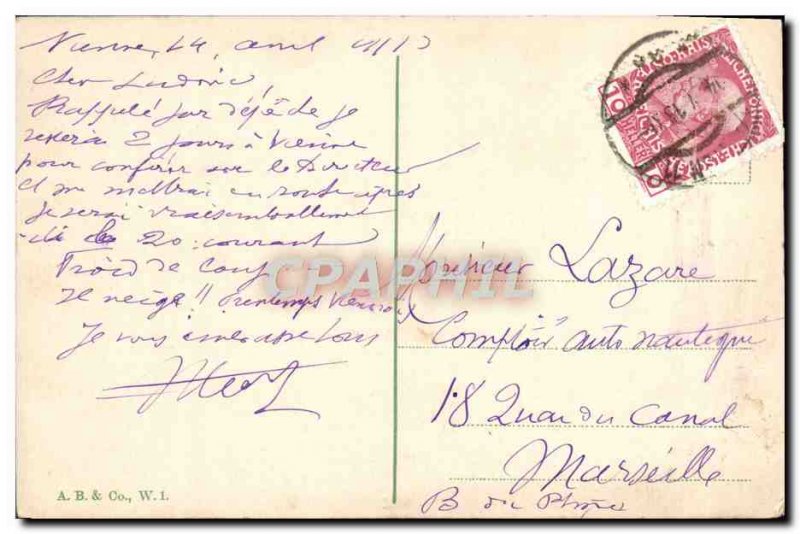 Vienne, 14, avril 1913
Cher Ludovic!
Rappelé par dépêche je
resterai 2 jours à Vienne
pour conférer avec le Directeur
et me mettrai en route après
Je serai vraisemblablement
ici le 20 courant
Froid de loup
Il neige!! Printemps Viennois
Je vous embrasse tous
Monsieur Lazare
Comptoir auto nautique
18 Quai du Canal
Marseille
B du Rhône
10 HELLER 10
A. B. & Co., W. I.
CPAPHIL